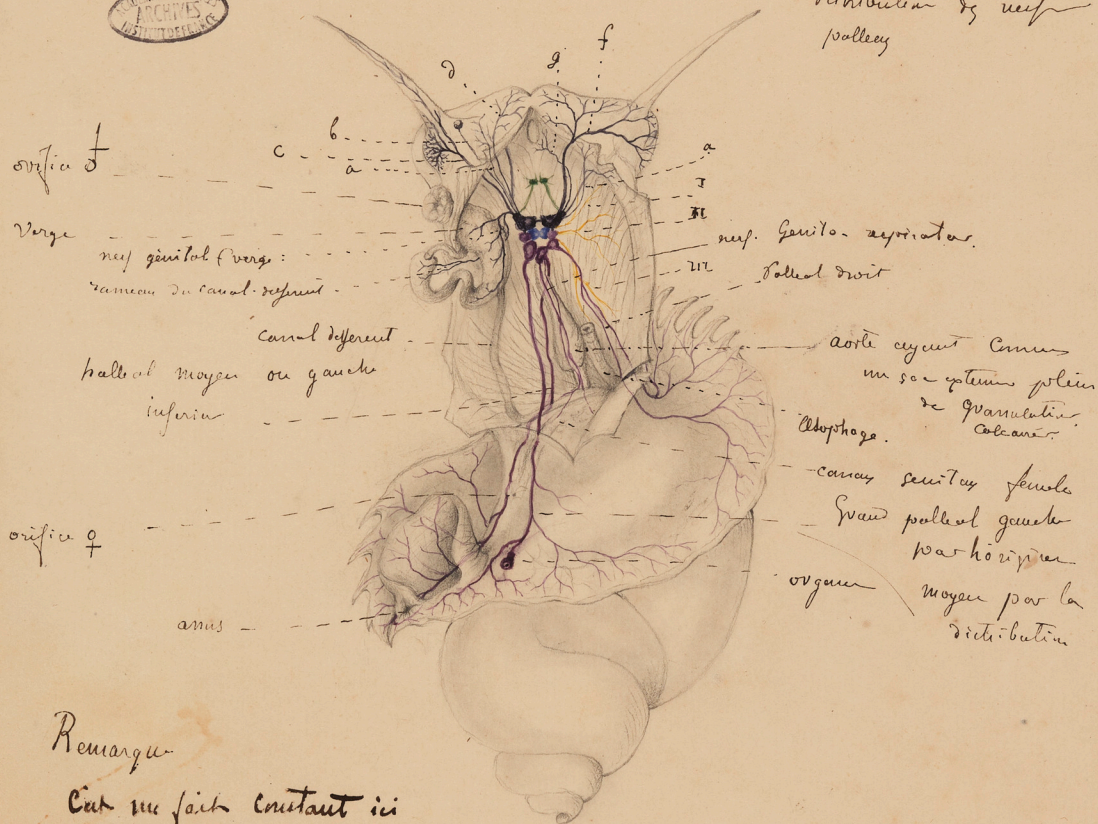 ARCHIVES
INSTITUT DE FRANCE
distribution des nerfs
palleaux
d
g
f
b
c
a
a
I
II
III
orifice ♂
Verge
nerf génital (verge:
rameau du canal-déférent
canal defferent
palleal moyen ou gauche
inferieur
orifice ♀
anus
nerf. Genito-respirator.
Palleal droit
aorte ayant comme
un sac externe plein
de granulation
calcaires.
Œsophage.
canaux genitaux femelle
Grand palleal gauche
par l'origine
organe
moyen par la
distribution
Remarque
C'est un fait constant ici